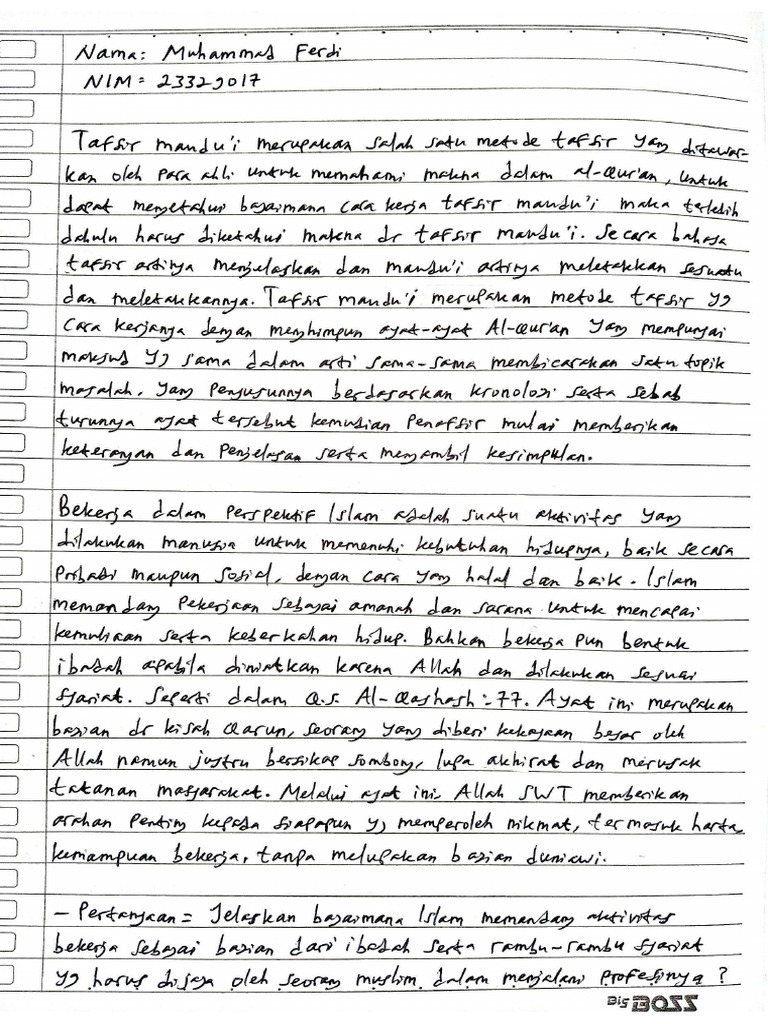 Nama: Muhammad Ferdi
NIM = 23329017
Tafsir maudu'i merupakan salah satu metode tafsir yang ditawar-
kan oleh para ahli untuk memahami makna dalam al-Qur'an, untuk
dapat mengetahui bagaimana cara kerja tafsir maudu'i maka terlebih
dahulu harus diketahui makna dr tafsir maudu'i. Secara bahasa
tafsir artinya menjelaskan dan maudu'i artinya meletakkan sesuatu
dan meletakkannya. Tafsir maudu'i merupakan metode tafsir yg
cara kerjanya dengan menghimpun ayat-ayat Al-Qur'an yang mempunyai
maksud yg sama dalam arti sama-sama membicarakan satu topik
masalah. yang penyusunnya berdasarkan kronologi serta sebab
turunnya ayat tersebut kemudian penafsir mulai memberikan
keterangan dan penjelasan serta mengambil kesimpulan.
Bekerja dalam perspektif Islam adalah suatu aktivitas yang
dilakukan manusia untuk memenuhi kebutuhan hidupnya, baik secara
pribadi maupun sosial, dengan cara yang halal dan baik. Islam
memandang pekerjaan sebagai amanah dan sarana untuk mencapai
kemuliaan serta keberkahan hidup. Bahkan bekerja pun bentuk
ibadah apabila diniatkan karena Allah dan dilakukan sesuai
syariat. Seperti dalam Q.S. Al-Qashash: 77. Ayat ini merupakan
bagian dr kisah Qarun, seorang yang diberi kekayaan besar oleh
Allah namun justru bersikap sombong, lupa akhirat dan merusak
tatanan masyarakat. Melalui ayat ini, Allah SWT memberikan
arahan penting kepada siapapun yg memperoleh nikmat, termasuk harta,
kemampuan bekerja, tanpa melupakan bagian duniawi.
- Pertanyaan = Jelaskan bagaimana Islam memandang aktivitas
bekerja sebagai bagian dari ibadah serta rambu-rambu syariat
yg harus dijaga oleh seorang muslim dalam menjalani profesinya?
Big BOSS